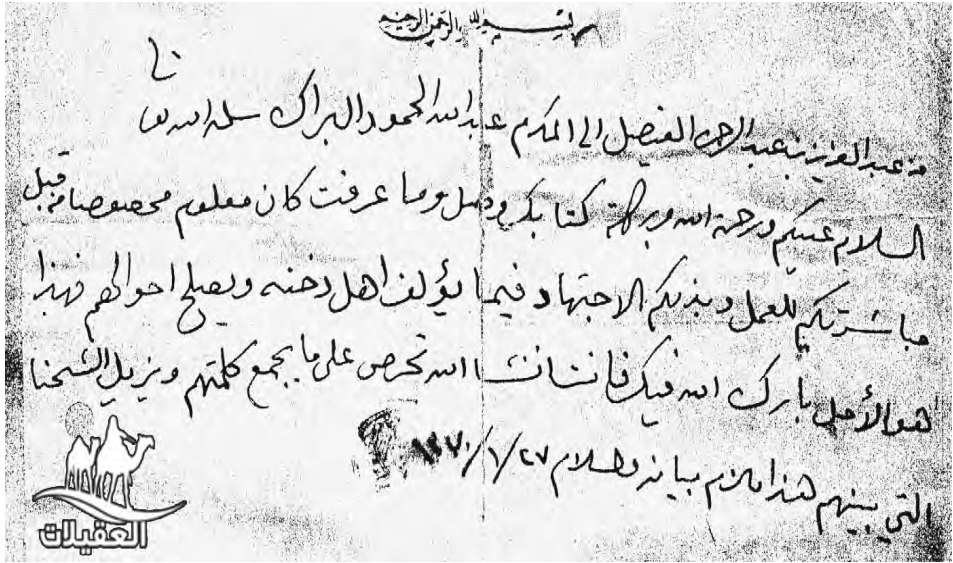 بسم الله الرحمن الرحيم
من عبد العزيز بن عبد الرحمن الفيصل الى المكرم عبد الله الحمود البراك سلمه الله
السلام عليكم ورحمة الله وبركاته كتابكم وصل وما عرفت كان معلوم مخصوصا من قبل
مباشرتكم للعمل وبذلكم الاجتهاد فيما يؤلف اهل دخنه ويصلح احوالهم فهذا
هو الأمل بارك الله فيك فانت انشا الله تحرص على ما يجمع كلمتهم ويزيل الشحنا
التي بينهم هذا ما لزم بيانه والسلام ٢٧/١/
العقيلات